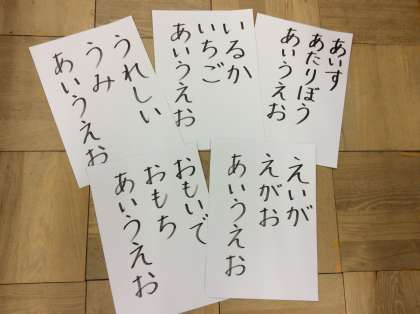 あいす
あたりぼう
あいうえお
いるか
いちご
あいうえお
うれしい
うみ
あいうえお
えいが
えがお
あいうえお
おもいで
おもち
あいうえお